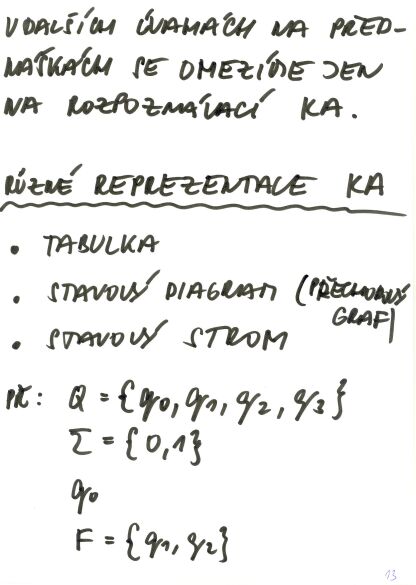 V DALŠÍCH ÚVAHÁCH NA PŘED-
NÁŠKÁCH SE OMEZÍME JEN
NA ROZPOZNÁVACÍ KA.
RŮZNÉ REPREZENTACE KA
• TABULKA
• STAVOVÝ DIAGRAM (PŘECHODOVÝ
GRAF)
• STAVOVÝ STROM
PŘ: Q = {q0, q1, q2, q3}
Σ = {0,1}
q0
F = {q1, q2}
13